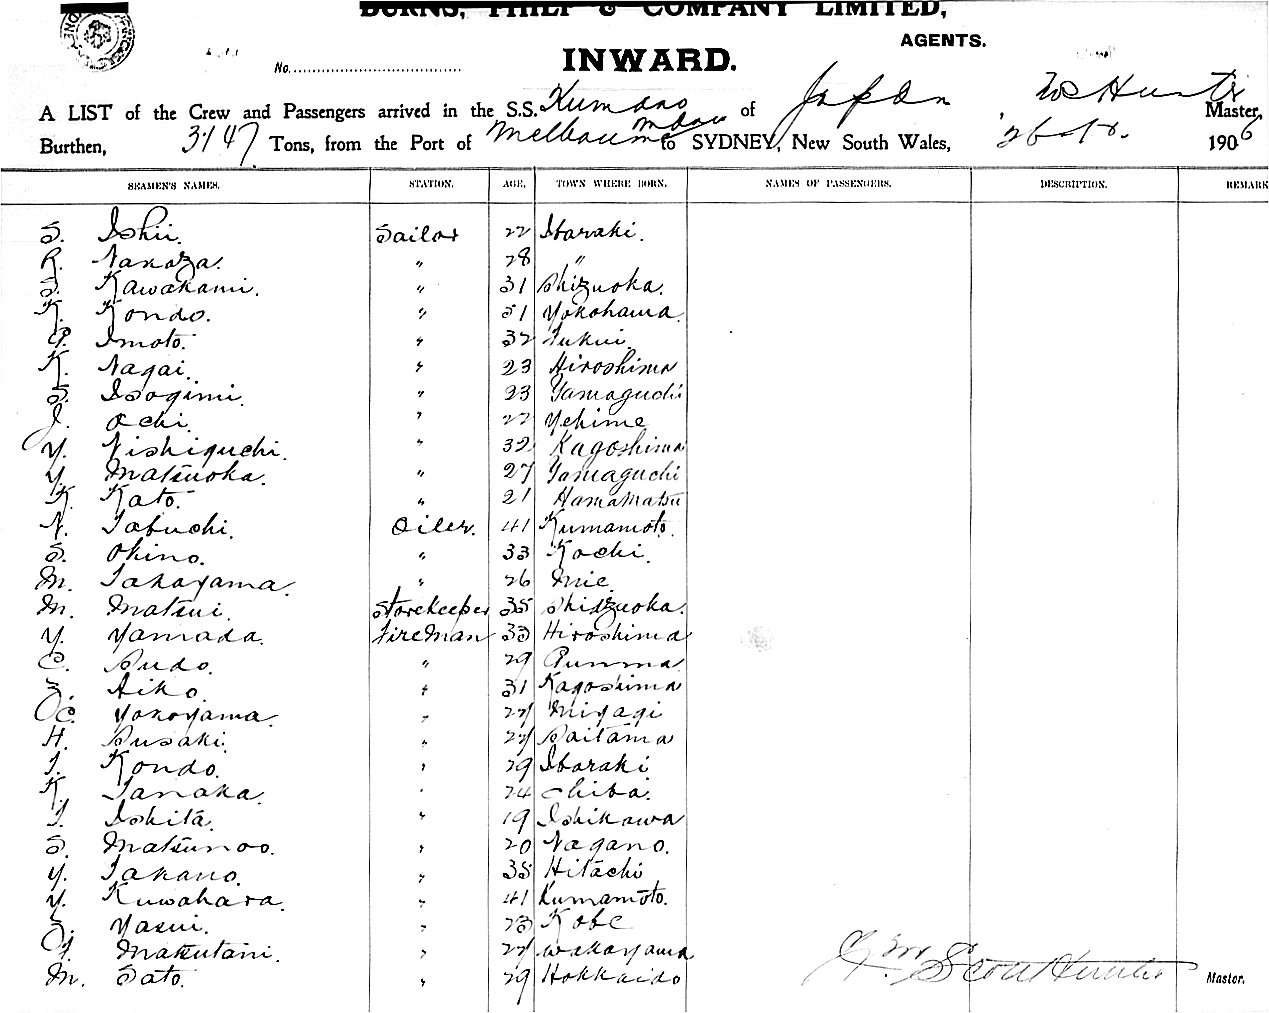 BURNS, PHILP & COMPANY LIMITED,
AGENTS.
INWARD.
No.
A LIST of the Crew and Passengers arrived in the S.S. Kumano Maru of Japan W S Hunter Master,
Burthen, 3147 Tons, from the Port of Melbourne to SYDNEY, New South Wales, 1906
SEAMEN'S NAMES. STATION. AGE. TOWN WHERE BORN. NAMES OF PASSENGERS. DESCRIPTION. REMARK
S. Ishii. Sailor 22 Ibaraki.
R. Nakaza. " 28 "
S. Kawakami. " 31 Shizuoka.
K. Kondo. " 31 Yokohama
Imoto. " 32 Fukui.
K. Nagai. " 23 Hiroshima
S. Isogimi. " 23 Yamaguchi
J. Ochi. " 22 Yehime
Y. Nishiguchi. " 32 Kagoshima
Y. Matsuoka. " 27 Yamaguchi
K. Kato. " 21 Hamamatsu
N. Tabuchi. Oiler. 41 Kumamoto.
S. Okino. " 33 Kochi.
M. Takayama. " 26 Mie
M. Matsui. Storekeeper 35 Shidzuoka.
Y. Yamada. Fireman 33 Hiroshima
C. Sudo. " 29 Gunma
Z. Aiko. " 31 Kagoshima
C. Yokoyama. " 27 Miyagi
H. Susaki. " 27 Saitama
T. Kondo. " 29 Ibaraki
K. Tanaka. " 24 Chiba.
T. Ishita. " 19 Ishikawa
S. Matsunoo. " 20 Nagano.
Y. Takano. " 35 Hitachi
Y. Kuwahara. " 41 Kumamoto.
Z. Yasui. " 23 Kobe
T. Matsutani. " 27 Wakayama
M. Sato. " 29 Hokkaido
Wm Scott Hunter Master.